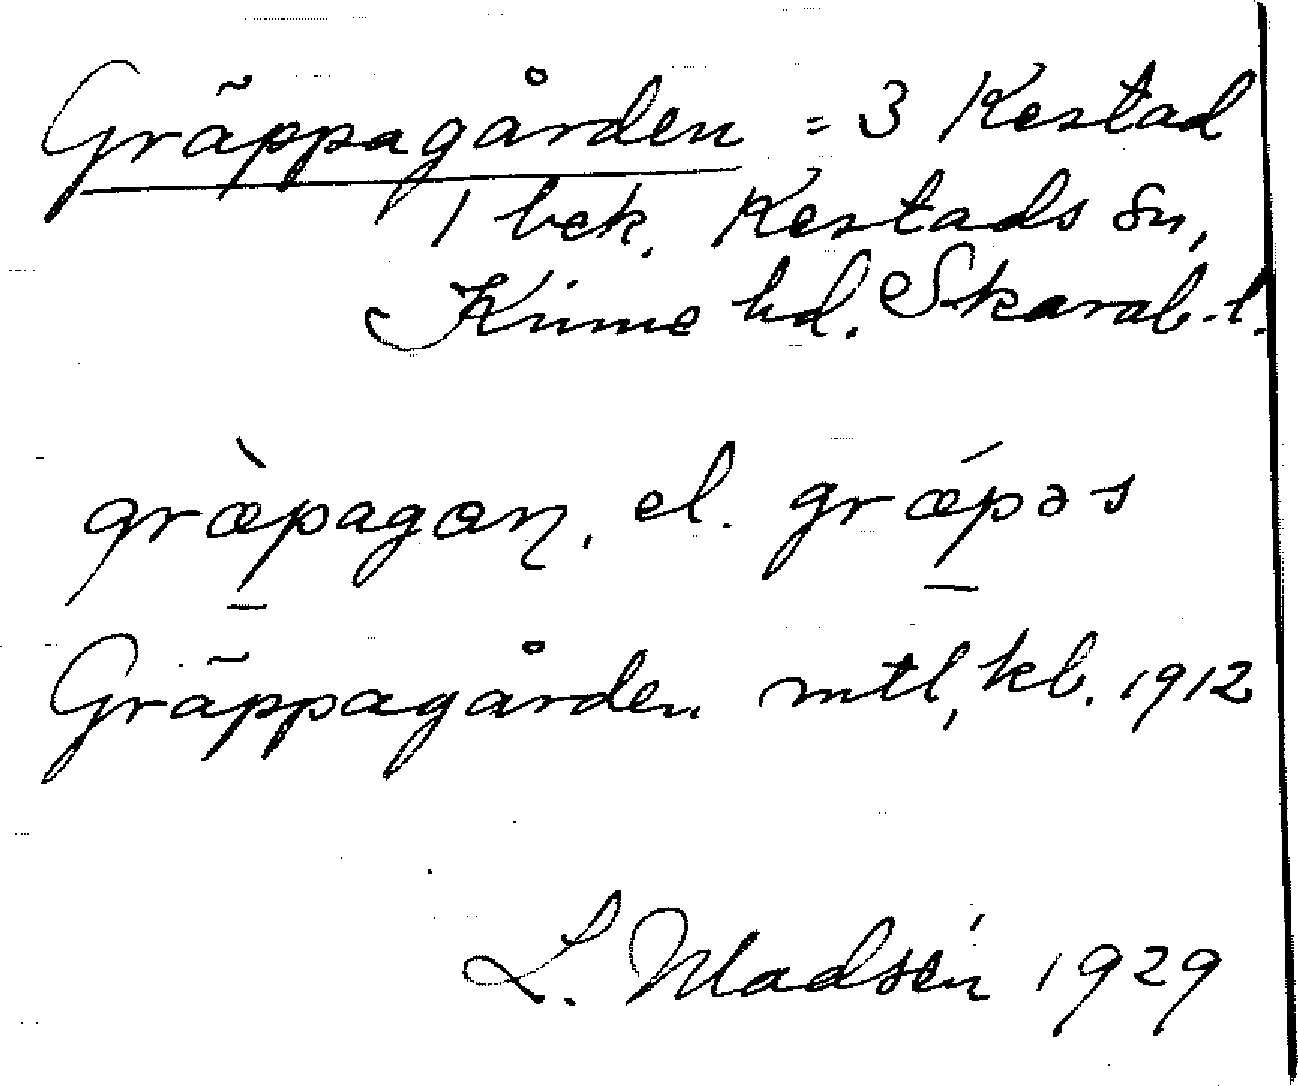 Gräppagården = 3 Kestad
1 bek. Kestads sn,
Kinne hd. Skarab. l.
græ̀pagaɳ, el. grǽpəs
Gräppagården mtl, kb. 1912
L. Madsén 1929